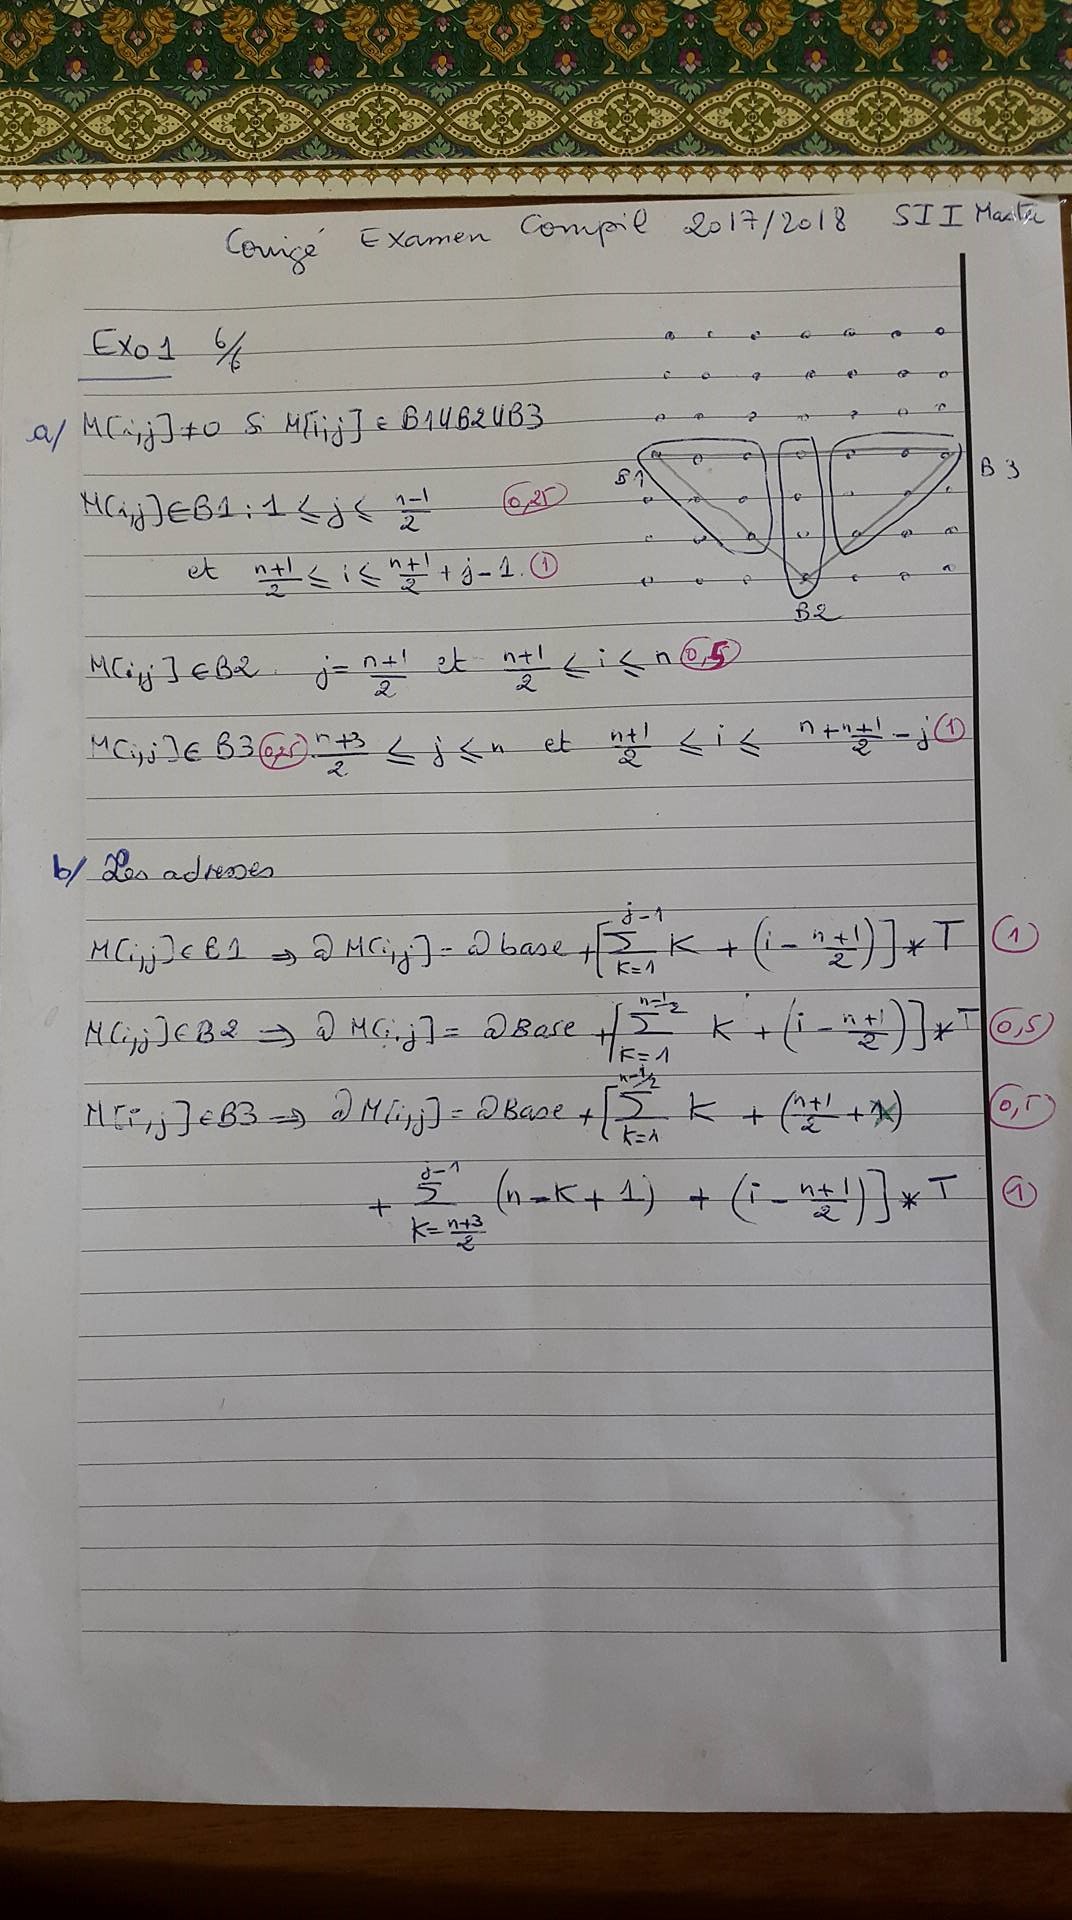 Corrigé Examen Compil 2017/2018 SII Master
Exo1 6/6
a/ M[i,j]≠0 Si M[i,j] ∈ B1UB2UB3
M[i,j]∈B1: 1 ≤ j ≤ (n-1)/2 0,25
et (n+1)/2 ≤ i ≤ (n+1)/2 + j - 1. 1
B1
B3
B2
M[i,j]∈B2. j = (n+1)/2 et (n+1)/2 ≤ i ≤ n 0,5
M[i,j]∈B3 0,25 (n+3)/2 ≤ j ≤ n et (n+1)/2 ≤ i ≤ n + (n+1)/2 - j 1
b/ Les adresses
M[i,j]∈B1 ⇒ @M[i,j] = @base + [∑_{K=1}^{j-1} K + (i - (n+1)/2)] * T 1
M[i,j]∈B2 ⇒ @M[i,j] = @Base + [∑_{K=1}^{n-1/2} K + (i - (n+1)/2)] * T 0,5
M[i,j]∈B3 ⇒ @M[i,j] = @Base + [∑_{K=1}^{n-1/2} K + ((n+1)/2 + ) 0,5
+ ∑_{K=(n+3)/2}^{j-1} (n-K+1) + (i - (n+1)/2)] * T 1